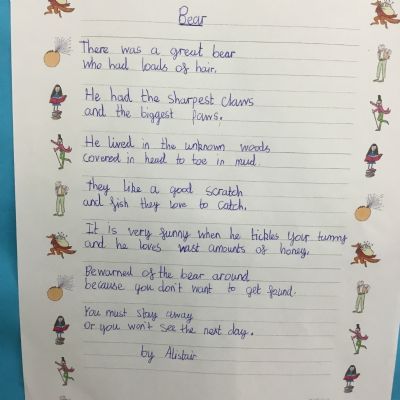 Bear
There was a great bear
who had loads of hair.
He had the sharpest claws
and the biggest paws.
He lived in the unknown woods
covered in head to toe in mud.
They like a good scratch
and fish they love to catch.
It is very funny when he tickles your tummy
and he loves vast amounts of honey.
Bewarned of the bear around
because you don't want to get found.
You must stay away
or you won't see the next day.
by Alistair